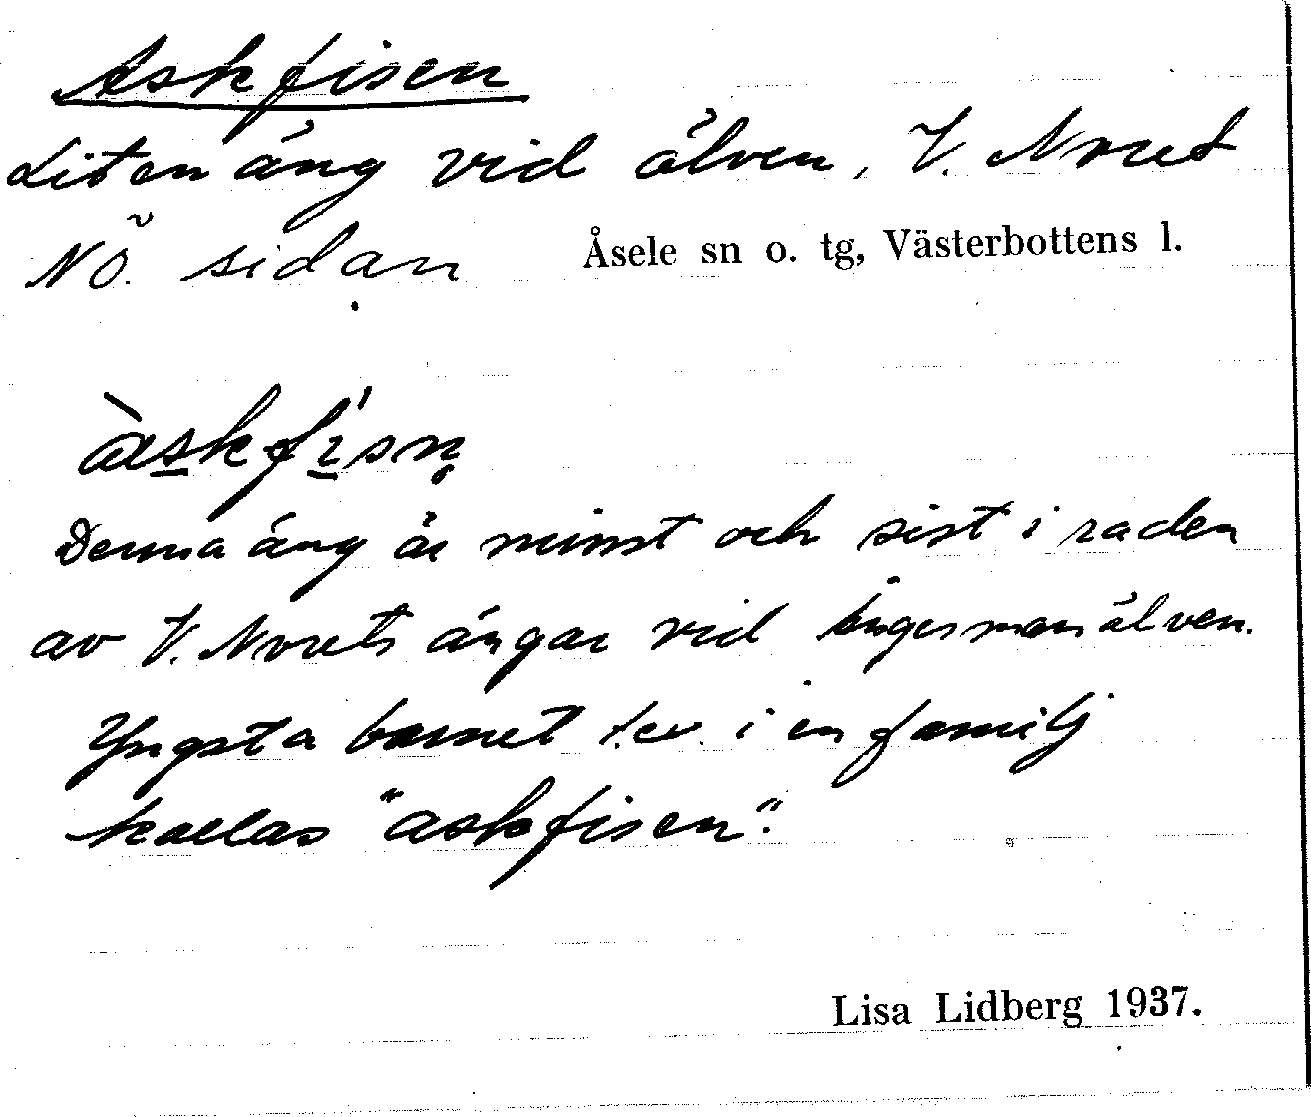 Askfisen
Liten äng vid älven, V. Noret
NÖ. sidan
Åsele sn o. tg, Västerbottens l.
àskfı̍sn̥
Denna äng är minst och sist i raden
av V. Norets ängar vid Ångermanälven.
Yngsta barnet t.ex. i en familj
kallas "askfisen".
Lisa Lidberg 1937.